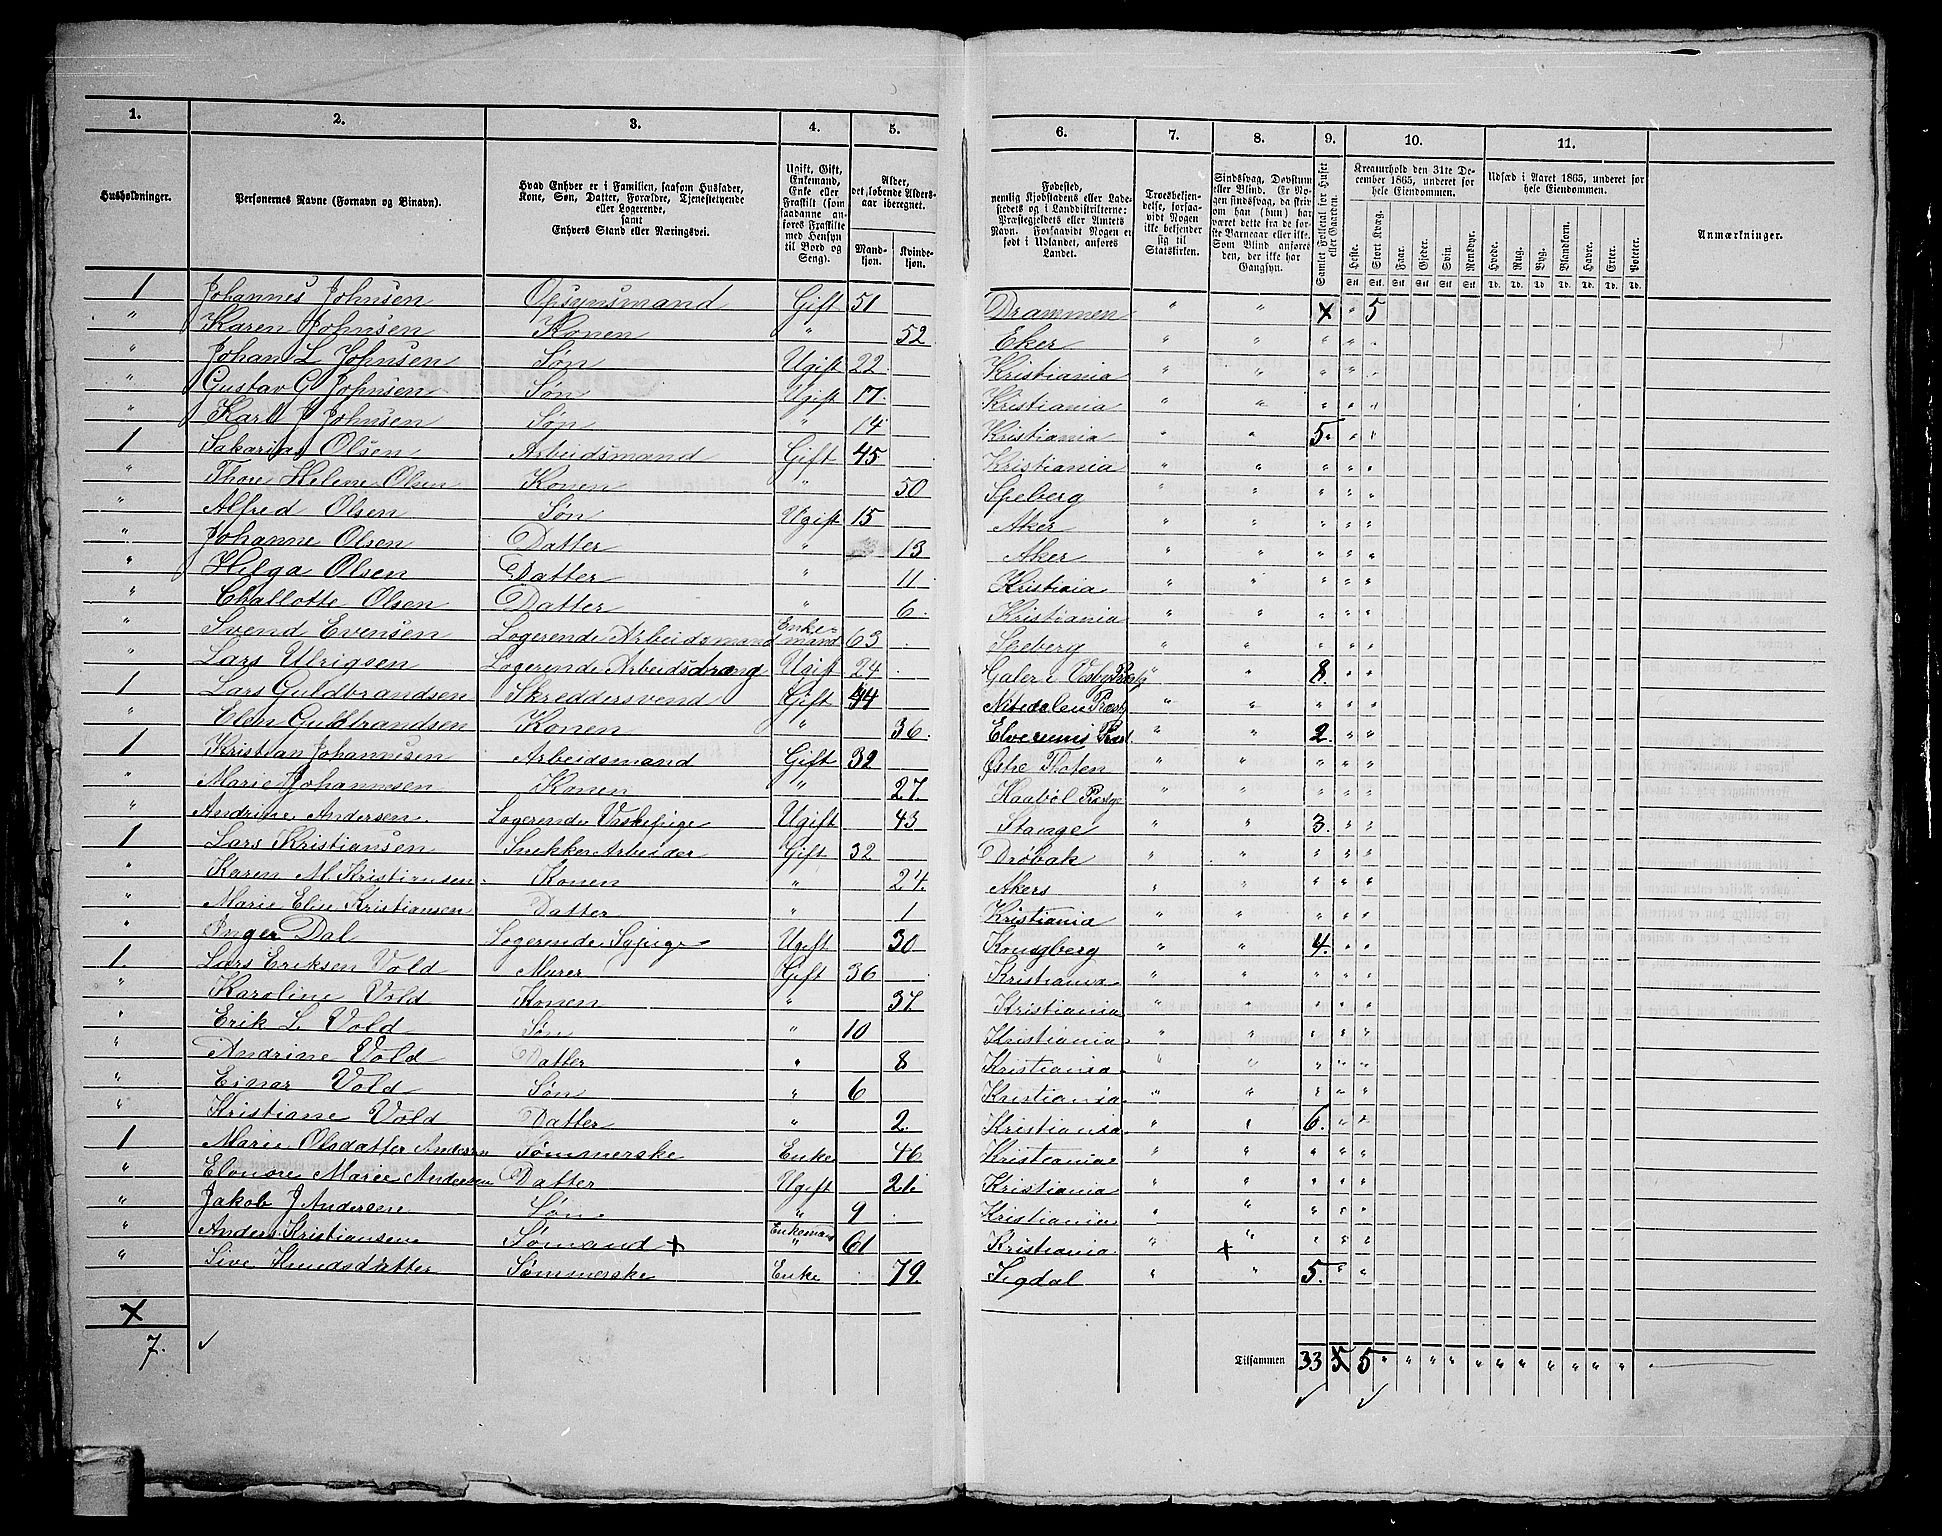 1. 2. 3. 4. 5. 6. 7. 8. 9. 10. 11.
Husholdninger. Personernes Navne (Fornavn og Binavn). Hvad Enhver er i Familien, saasom Husfader, Kone, Søn, Datter, Forældre, Tjenestetyende eller Logerende, samt Enhvers Stand eller Næringsvei. Ugift, Gift, Enkemand, Enke eller Fraskilt (som saadanne anføres Fraskilte med Hensyn til Bord og Seng). Alder, det løbende Aldersaar iberegnet. Mandkjøn. Kvindekjøn. Fødested, nemlig Kjøbstadens eller Ladestedets og i Landdistrikterne: Præstegjeldets eller Amtets Navn. Forsaavidt Nogen er født i Udlandet, anføres Landet. Troesbekjendelse, forsaavidt Nogen ikke bekjender sig til Statskirken. Sindssvag, Døvstum eller Blind. Er Nogen sindssvag, da skriv om han (hun) har været dette fra de første Barneaar eller ikke. Som Blind anføres den, der ikke har Gangsyn. Samlet Folketal for Huset eller Gaarden. Kreaturhold den 31te December 1865, underet for hele Eiendommen. Udsæd i Aaret 1865, underet for hele Eiendommen. Anmærkninger.
Heste. Stort Kvæg. Faar. Gjeder. Svin. Rensdyr. Hvede. Rug. Byg. Blandkorn. Havre. Erter. Poteter.
Stk Stk Stk Stk Stk Stk Td. Td. Td. Td. Td. Td. Td.
1 Johannes Johnsen Opsynsmand Gift 51 Drammen " " x " 5
" Karen Johnsen Konen " 52 Eker " " " " "
" Johan L Johnsen Søn Ugift 22 Kristiania " " " " "
" Gustav G Johnsen Søn Ugift 17. Kristiania " " " " "
" Karl J Johnsen Søn " 14 Kristiania " " 5. " "
1 Sakarias Olsen Arbeidsmand Gift 45 Kristiania " " " " "
" Thore Helene Olsen Konen " 50 Speberg " " " " "
" Alfred Olsen Søn Ugift 15 Aker " " " " "
" Johanne Olsen Datter " 13 Aker " " " " "
" Helga Olsen Datter " 11 Kristiania " " " " "
" Challotte Olsen Datter " 6. Kristiania " " " " "
" Svend Evensen Logerende Arbeidsmand Enkemand 63 " " " " "
" Lars Ulrigsen Logerende Arbeidsdrang Ugift 24 " " 8. " "
1 Lars Guldbrandsen Skreddersvend Gift 44 Nitedalen Præstg " " " " "
" Elen Guldbrandsen Konen " 36. Elverums Præst. " " 2. " "
1 Kristian Johannesen Arbeidsmand Gift 32 Østre Thoten " " " " "
" Marie Johannesen Konen " 27. Haabøl Præstge " " " " "
" Andrine Andersen. Logerende Vaskepige Ugift 43 Stange " " 3. " "
1 Lars Kristiansen Snekker Arbeider Gift 32 Drøbak " " " " "
" Karen M. Kristiansen Konen " 24. Akers " " " " "
" Marie Elise Kristiansen Datter " 1 Kristiania " " " " "
" Inger Dal Logerende Sypige Ugift 30 Kongberg " " 4. " "
1 Lars Eriksen Vold Murer Gift 36 Kristiania " " " " "
" Karoline Vold Konen " 37 Kristiania " " " " "
" Erik L. Vold Søn " 10 Kristiania " " " " "
" Andrine Vold Datter " 8 Kristiania " " " " "
" Einar Vold Søn " 6 Kristiania " " " " "
" Kristiane Vold Datter " 2. Kristiania " " 6. " "
1 Marie Olsdatter Andersen Sømmerske Enke 46 Kristiania " " " " "
" Elonore Marie Andersen Datter Ugift 21. Kristiania " " " " "
" Jakob J Andersen Søn " 9 Kristiania " " " " "
" Anders Kristiansen Sømand x Enkemand 61 Kristiania " x " " " "
" Sive Knudsdatter Sømmerske Enke 79. Sigdal " " 5. " "
x
7. ✓ Tilsammen 33 5 5 " " " " " " " " " " "
✓ ✓